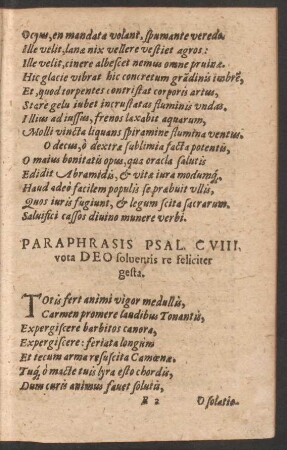 Ocyus, en mandata volant, spumante veredo.
Ille velit, lanæ nix vellere vestiet agros:
Ille velit, cinere albescet nemus omne pruinæ.
Hic glacie vibrat hic concretum grādinis imbrē,
Et, quod torpentes contristat corporis artus,
Stare gelu iubet incrustatas fluminis vndas.
Illius ad iussus, frenos laxabit aquarum,
Molli vincta liquans spiramine flumina ventus.
O decus, ô dextræ sublimia facta potentis,
O maius bonitatis opus, quæ oracla salutis
Edidit Abramidis, & vitæ iura modumq́;
Haud adeò facilem populis se præbuit vllis,
Quos iuris fugiunt, & legum scita sacrarum.
Saluifici cassos diuino munere verbi.
PARAPHRASIS PSAL. CVIII.
vota DEO soluentis re feliciter
gesta.
TOtis fert animi vigor medullis,
Carmen promere laudibus Tonantis,
Expergiscere barbitos canora,
Expergiscere: feriata longùm
Et tecum arma resuscita Camœnæ.
Tuq́; ô macte tuis lyra esto chordis,
Dum curis animus fauet solutis,
2
O solatio-